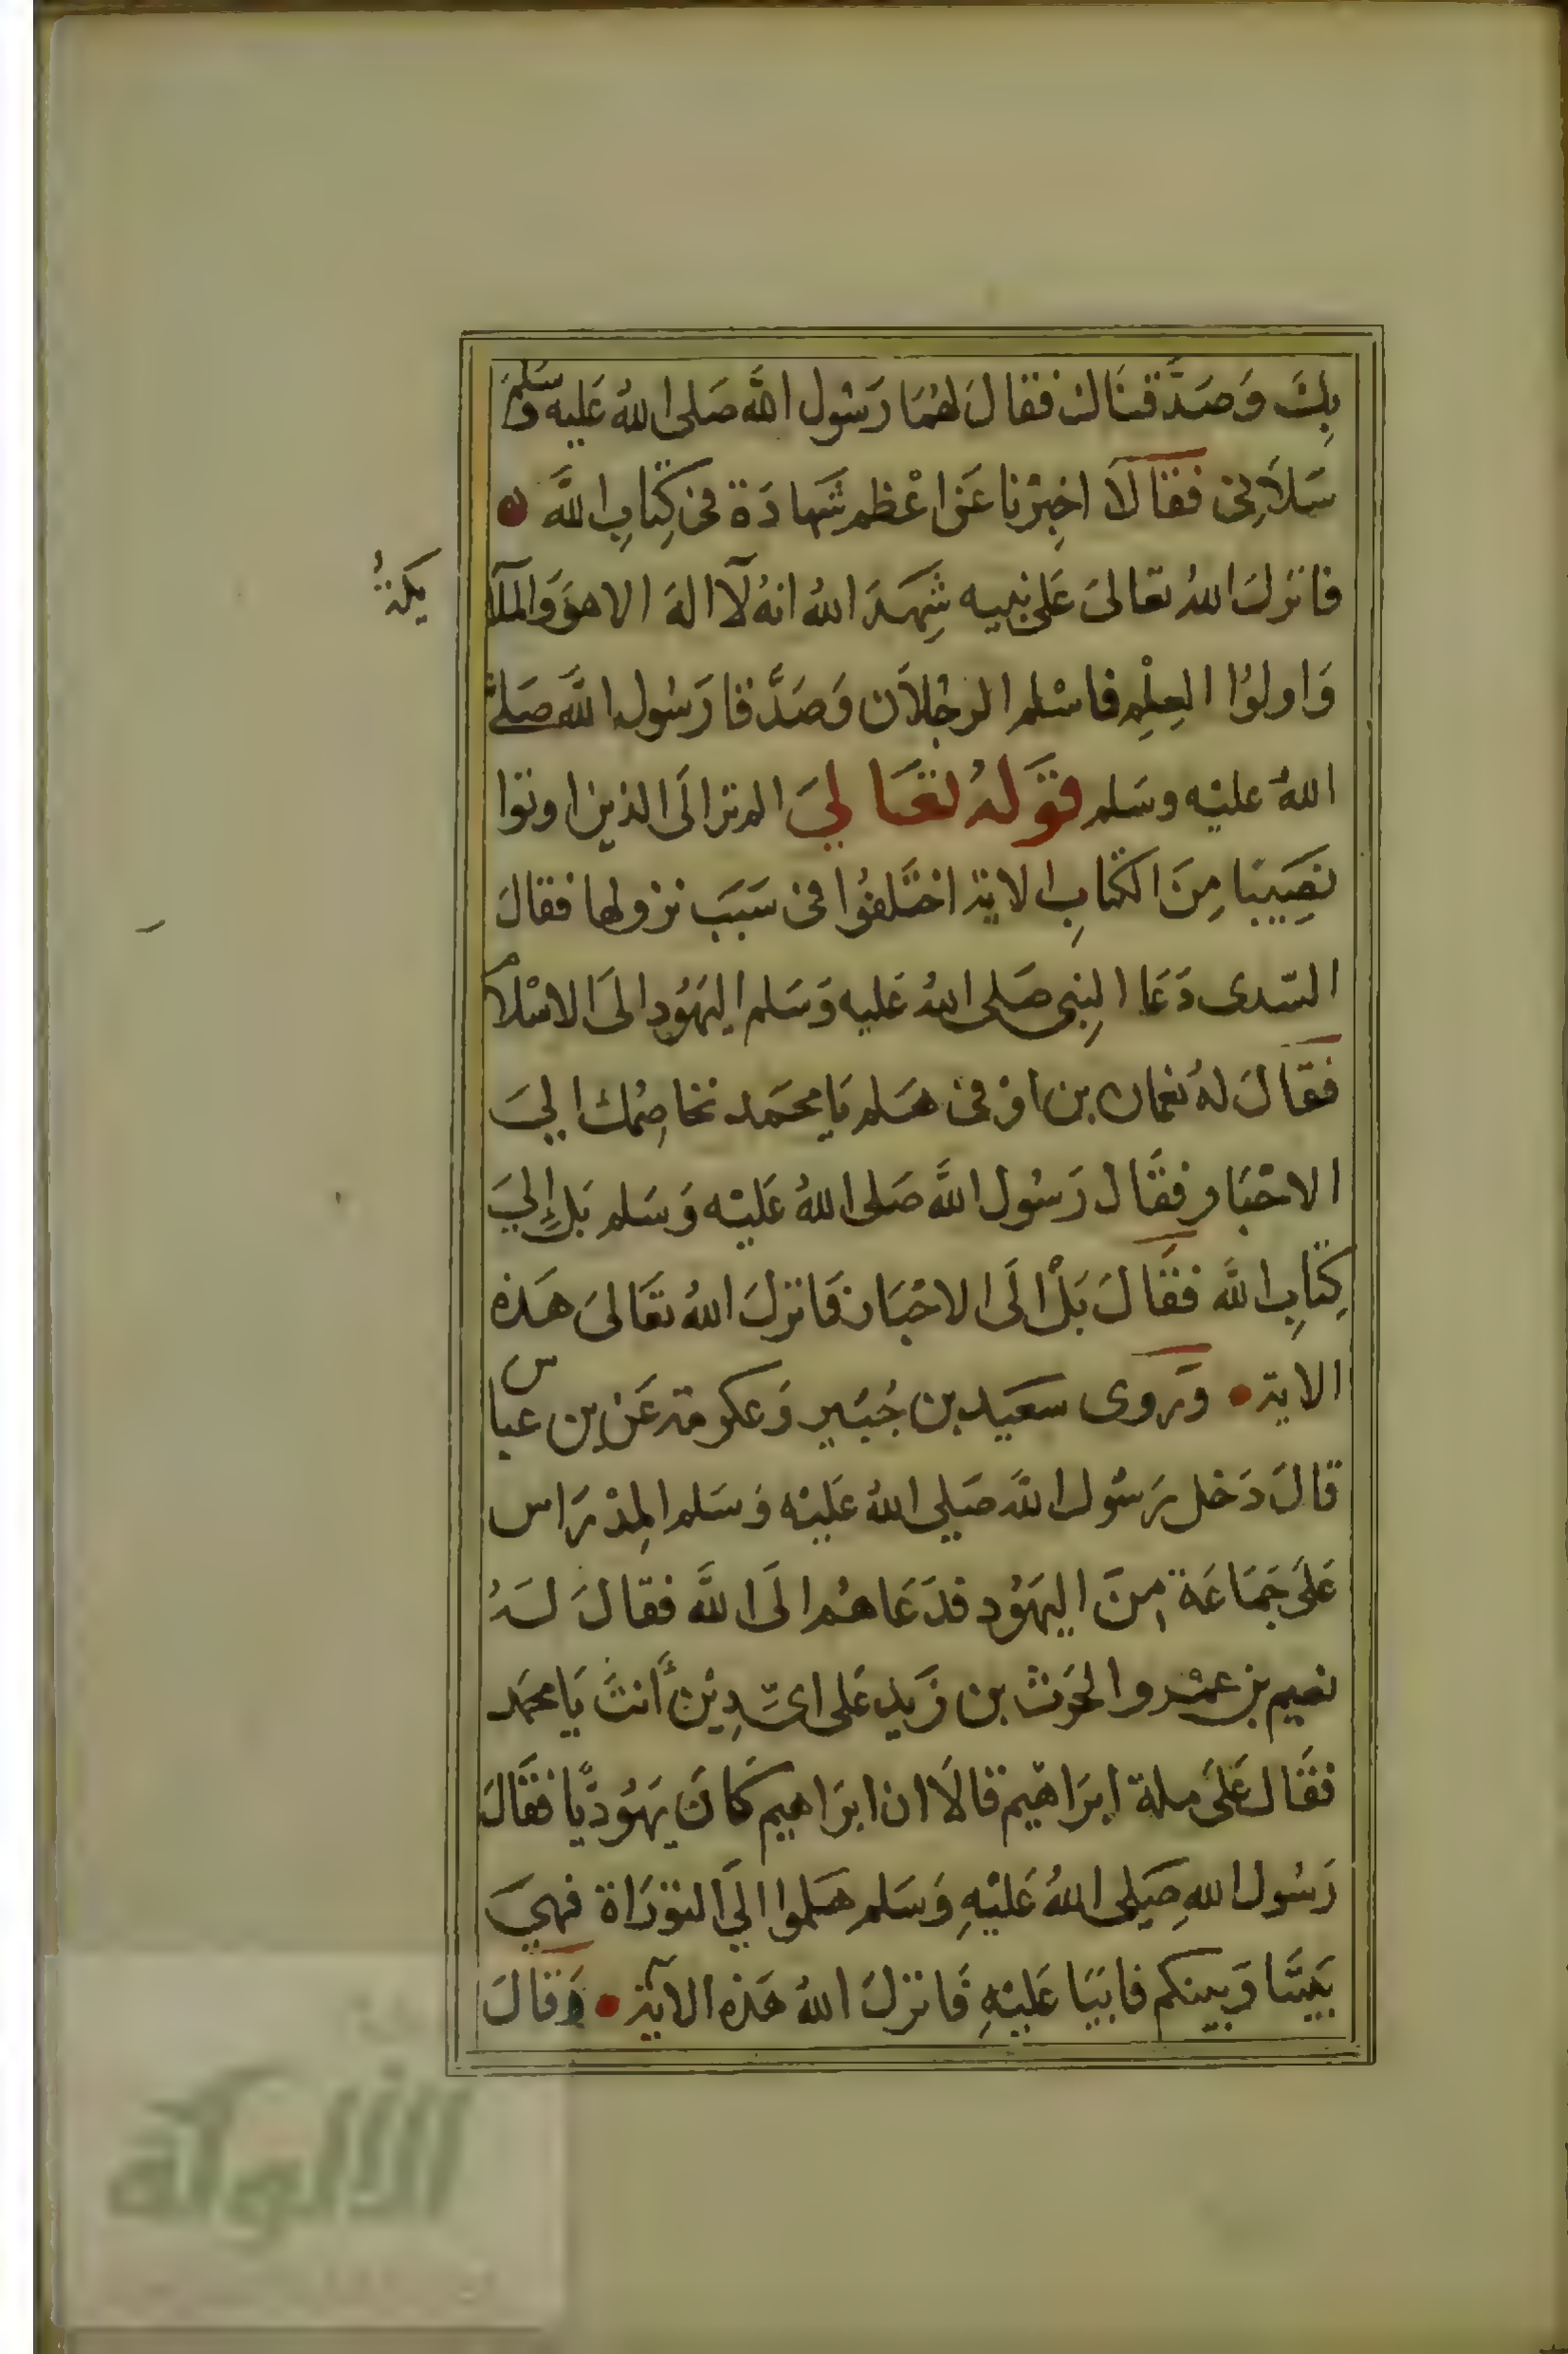 بِكَ وَصَدَّقنَاك فقالَ لهُمَا رَسُول اللَّه صَلى اللهُ عَليه وسَلم
سَلَانِى فقالَا اخبِرْنا عَن اعْظم شَهادَة فى كِتابِ اللَّه
فانزلَ اللهُ تعالىَ عَلى نبيه شَهِدَ اللهُ انهُ لَآ الهَ الا هوَ وَالملآ
يكةُ
وَاولوُا العِلْمِ فاسْلم الرجُلَان وَصَدَّقا رَسُول اللَّه صَلى
اللهُ عليْه وسَلم قوَلهُ تعَالىَ الم ترَ الَى الذين اوتوا
نصَيبًا مِنَ الكتابِ الاية اختَلفوُا فى سَبَب نزولها فقالَ
السّدى دَعَا النبِى صَلى اللهُ عَليه وَسَلم اليهَوُد الىَ الاسْلام
فقالَ لهُ نعمان بن اوْفى هَلم يَا محمَد نخاصِمُك الىَ
الاحْبَار فقَال رَسُول اللَّه صَلى اللهُ عَليْه وَسَلم بَل إلىَ
كِتابِ اللَّه فقَالَ بَلْ الَى الاحْبَار فَانزلَ اللهُ تعَالىَ هَذه
الاية وَروى سعَيد بن جُبَيْر وَعكرمة عَن بن عباس
قالَ دَخل رَسُول اللَّه صَلى اللهُ عَليْه وَسَلم المِدْرَاس
عَلىَ جَمَاعَة مِنَ اليهَوُد فدَعَاهُم الَى اللَّه فقالَ لَهُ
نعيم بن عمْرو والحرَث بن زَيد عَلى اىِّ دِيْن أَنتَ يَا محمَد
فقَال عَلىَ ملة ابرَاهيم قالَا ان ابرَاهيم كَانَ يهَوُديًّا فقَالَ
رَسُول اللهِ صَلى اللهُ عَليْهِ وَسَلم هَلموا الَى التورَاة فهىَ
بَيْنَنَا وَبينكم فابَيَا عَليْهِ فَانزلَ اللهُ هَذه الآية وَقالَ
الألوكة